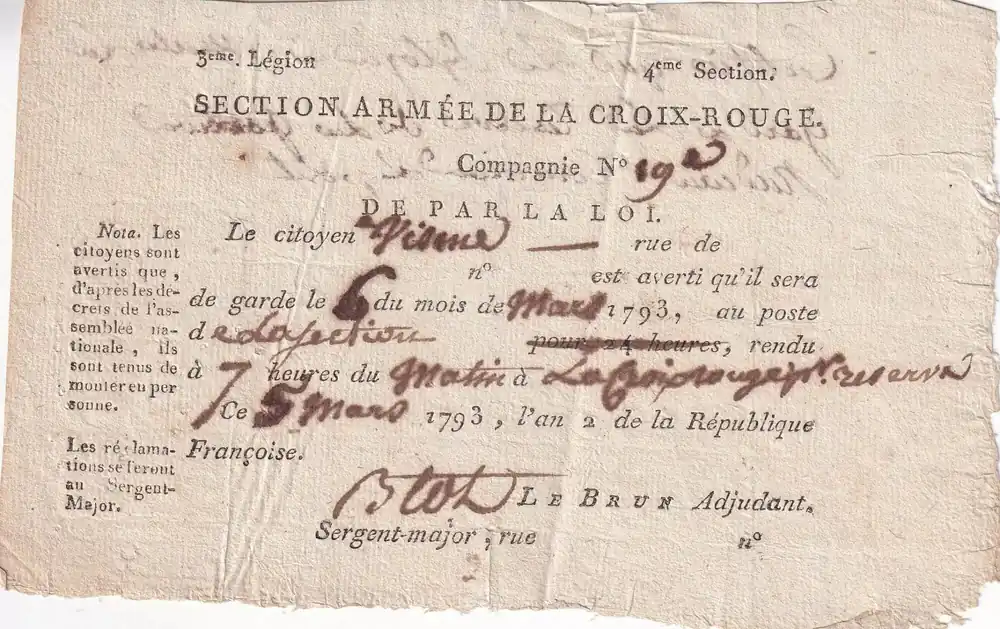 3eme. Légion 4eme Section.
SECTION ARMÉE DE LA CROIX-ROUGE.
Compagnie N° 19e
DE PAR LA LOI.
Le citoyen Visme — rue de
n° est averti qu'il sera
de garde le 6 du mois de Mars 1793, au poste
de La section pour 24 heures, rendu
à 7 heures du Matin à La Croix rouge pr. reserve
Ce 5 Mars 1793, l'an 2 de la République
Françoise.
LE BRUN Adjudant.
Sergent-major, rue n°
Nota. Les
citoyens sont
avertis que,
d'après les dé-
crets de l'as-
semblée na-
tionale, ils
sont tenus de
monter en per
sonne.
Les récla̶ma-
tions se feront
au Sergent-
Major.